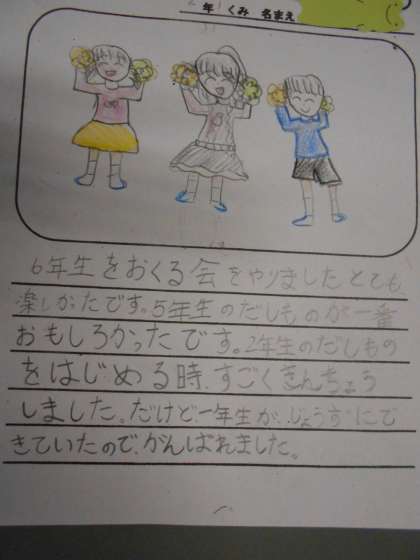 2年 くみ 名まえ
6年生をおくる会をやりましたとても
楽しかたです。5年生のだしものが一番
おもしろかったです。2年生のだしもの
をはじめる時、すごくきんちょう
しました。だけど一年生が、じょうずにで
きていたので、がんばれました。